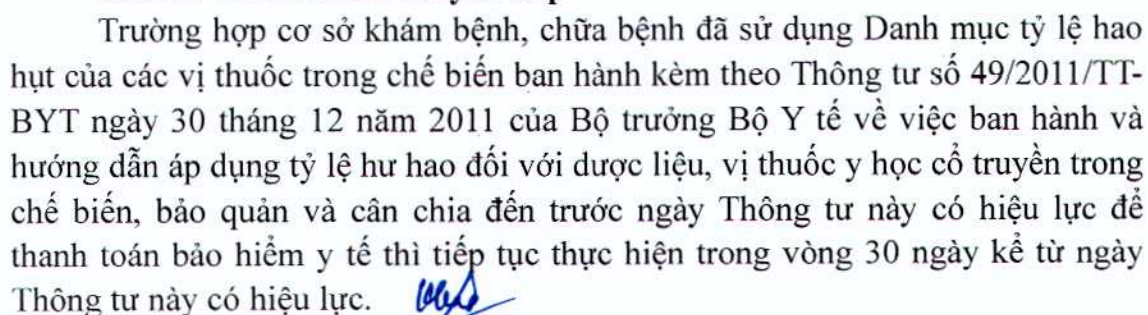 Trường hợp cơ sở khám bệnh, chữa bệnh đã sử dụng Danh mục tỷ lệ hao
hụt của các vị thuốc trong chế biến ban hành kèm theo Thông tư số 49/2011/TT-
BYT ngày 30 tháng 12 năm 2011 của Bộ trưởng Bộ Y tế về việc ban hành và
hướng dẫn áp dụng tỷ lệ hư hao đối với dược liệu, vị thuốc y học cổ truyền trong
chế biến, bảo quản và cân chia đến trước ngày Thông tư này có hiệu lực để
thanh toán bảo hiểm y tế thì tiếp tục thực hiện trong vòng 30 ngày kể từ ngày
Thông tư này có hiệu lực.